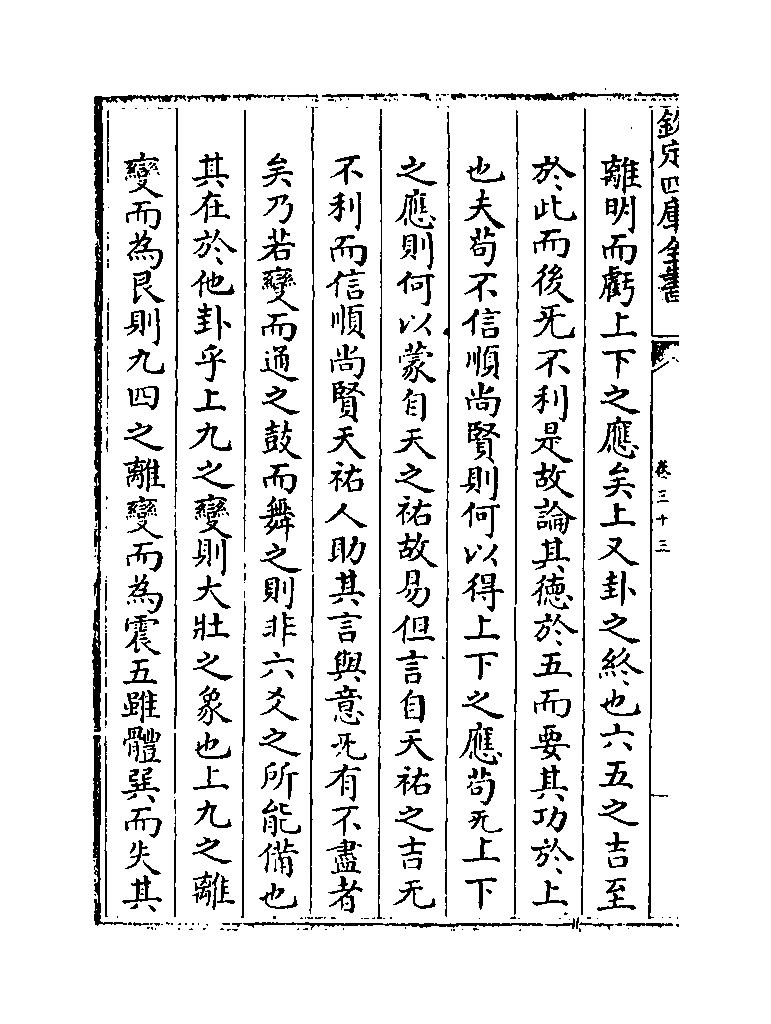 欽定四庫全書
卷三十三
離明而虧上下之應矣上又卦之終也六五之吉至
於此而後旡不利是故論其德於五而要其功於上
也夫苟不信順尚賢則何以得上下之應苟旡上下
之應則何以蒙自天之祐故易但言自天祐之吉无
不利而信順尚賢天祐人助其言與意旡有不盡者
矣乃若變而通之鼓而舞之則非六爻之所能備也
其在於他卦乎上九之變則大壯之象也上九之離
變而為艮則九四之離變而為震五雖體巽而失其